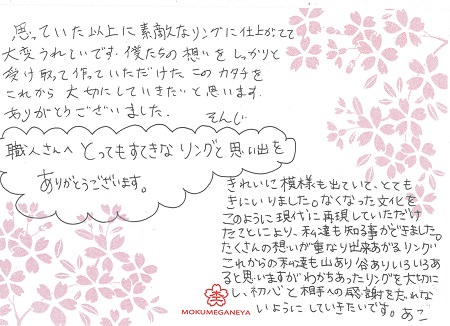 思っていた以上に素敵なリングに仕上がてて
大変うれしいです。僕たちの想いをしっかりと
受け取って作っていただけた、このカタチを
これから大切にしていきたいと思います。
ありがとうございました。 そんじ
職人さんへ とってもすてきなリングと思い出を
ありがとうございます。
きれいに模様も出ていて、とても
きにいりました。なくなった文化を
このように現代に再現していただけ
たことにより、私達も知る事ができました。
たくさんの想いが重なり出来あがるリング
これからの私達も山あり谷ありいろいろあ
ると思いますがわかちあったリングを大切に
し、初心と相手への感謝を忘れな
いようにしていきたいです。あこ
MOKUMEGANEYA